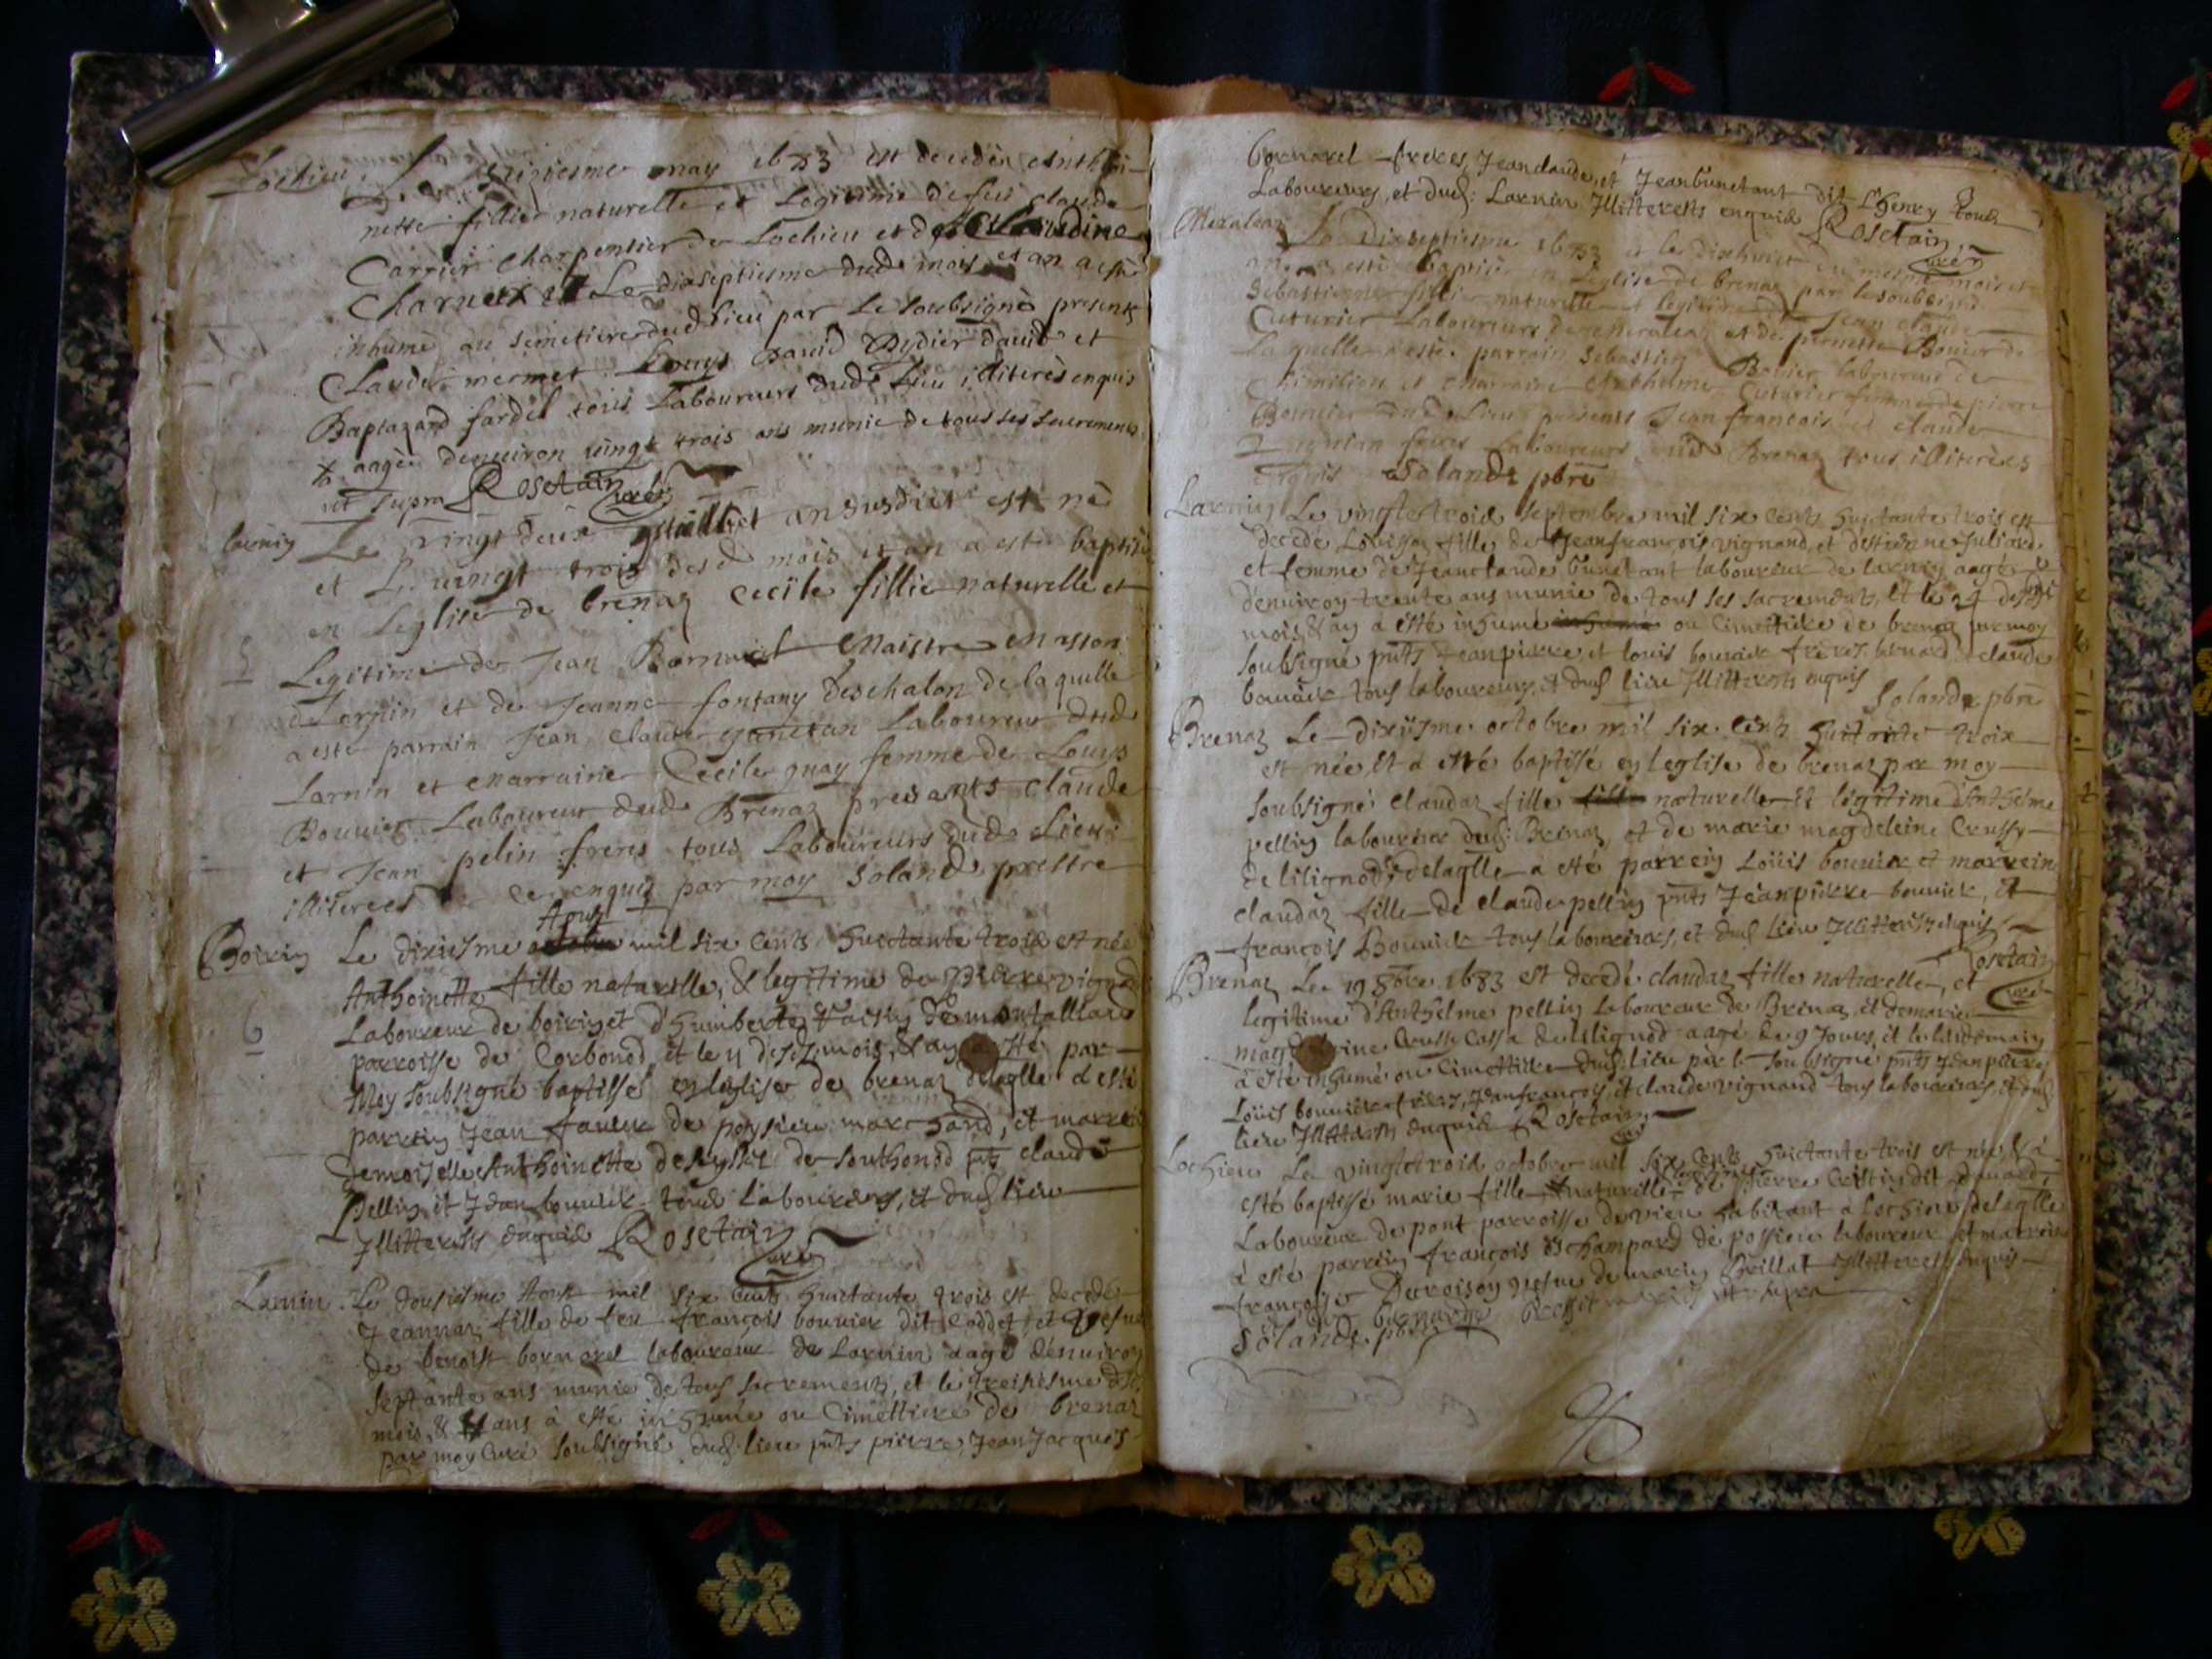 Lochieu Le seiziesme may 1683 est decedée Anthoi-
nette fillie naturelle et Legitime de feu claude
Carrier charpentier de Lochieu et de Claudine
Charveix et Le dixseptiesme dud mois et an a esté
inhumé au Semetiere dud Lieu par Le soubsigné presents
Claude mermet Louys David Dydier david et
Baptazard fardel tous Laboureurs dudt Lieu illiterés enquis
x aagée denuiron vingt trois ans munie de tous ses sacrements
ut supra Rosetain curé
Larnin Le vingt deux juilliet an susdict est né
et Le vingt trois desd mois et an a esté baptisé
en Leglise de brenaz Cecile fillie naturelle et
5
Legitime de Jean Bornarel Maistre Masson
de Larnin et de Jeanne fontany deschalon de laquelle
a esté parrain Jean Claude Laboureur dud
Larnin et Marraine Cecile guay femme de Louys
Bouvier Laboureur dud Brenaz presants Claude
et Jean pelin freres tous Laboureurs dud Lieu
illiterees ce enquis par moy Soland prestre
Aoust
Boirin Le dixiesme mil six cents huictante trois est née
Anthoinette fille naturelle, & legitime de Pierre vignand
6
Laboureur de boirin et d'humberte de montallian
parroisse de Corbonod, et le 11 desds mois, & an a esté par
Moy soubsigné baptissé en leglise de brenaz delaqlle a esté
parrein Jean faueur de poysieu marchand, et marreine
demoiselle Anthoinette de de southonod pnts claude
Pellin, et Jean bouvier tous laboureurs, et dud lieu
Illitterests enquis Rosetain curé
Larnin Le dousiesme Aoust mil six cents huictante trois est decedé
Jeannaz fille de feu françois bouvier dit Caddet, et vesue
de benoist bornarel laboureur de Larnin aagé d'enuiron
Septante ans munie de tous sacrements, et le treisiesme dsd
mois, & ans à esté inhumé ou Cimettiere de brenaz
par moy Curé soubsigné dud lieu pnts pierre, Jean Jacques
bornarel freres, Jean claude, et Jean bunetant dit Lhenry tous
Laboureurs, et dud: Larnin Illitterests enquis Rosetain curé
Meraleaz Le Dixseptiesme 1683 et le dixhuict du mesme mois et
an a esté baptisé en Leglise de brenaz par le soubsigné
Sebastienne fillie naturelle et legitime de Jean claude
Cuturier Laboureurs de Meraleaz et de pernette Bovier de
Laquelle a esté parrain Sebastien Bovier laboureur de
Chimilieu et Marraine Anthelme Cuturier femme de pierre
Bouvier dud Lieu presents Jean francois et claude
Vignian freres Laboureurs dud Brenaz tous illiterées
enquis Solande pbre
Larnin Le vingtetrois Septembre mil six cents huictante trois est
decedé Louison fille de Jean françois vignand, et d'estienne Juliard
et femme de Jean claude bunetant laboureur de larnin aagé
d'enuiron trente ans munie de tous ses sacrements, et le 24 desds
mois, & an a esté inhumé ou Cimettiere de brenaz par moy
soubsigné pnts Jean pierre et louis bouvier freres bernard claude
bouvier tous laboureurs, & dud lieu Illitterests enquis
Solande pbre
Brenaz Le dixiesme octobre mil six cents huictante trois
est née, et a esté baptissé en leglise de brenaz par moy
soubsigné Claudaz fille naturelle et légitime d'Anthelme
pellin laboureur dud: Brenaz, et de marie magdeleine Crussy
de lilignod, delaqlle a esté parrein Loüis bouvier et marrein
claudaz fille de claude pellin pnts Jean pierre bouvier, et
françois Bouvier tous laboureurs, et dud lieu Illitterests enquis
Rosetain curé
Brenaz Le 19 8bre 1683 est decedé claudaz fille naturelle, et
legitime d'Anthelme pellin laboureur de Brenaz, et de marie
magdeleine de lilignod aagé de 9 Jours, et le lendemain
à esté inhumé ou Cimettiere dud: lieu par le soubsigné pnts Jean pierre,
Loüis bouvier freres, Jean françois, et claude vignand tous laboureurs, et dud
lieu Illitterests enquis Rosetain curé
Lochieu Le vingtetrois octobre mil six cents huictante trois est née, & à
esté baptissé marie fille naturelle de pierre dit
Laboureur de pont parroisse de vieu habitant à Lochieu delaqlle
à esté parrein françois deschampard de possieu laboureur et marreine
françoise vesue de marin Brillat Illitterests enquis
ut supra
Solande pbre